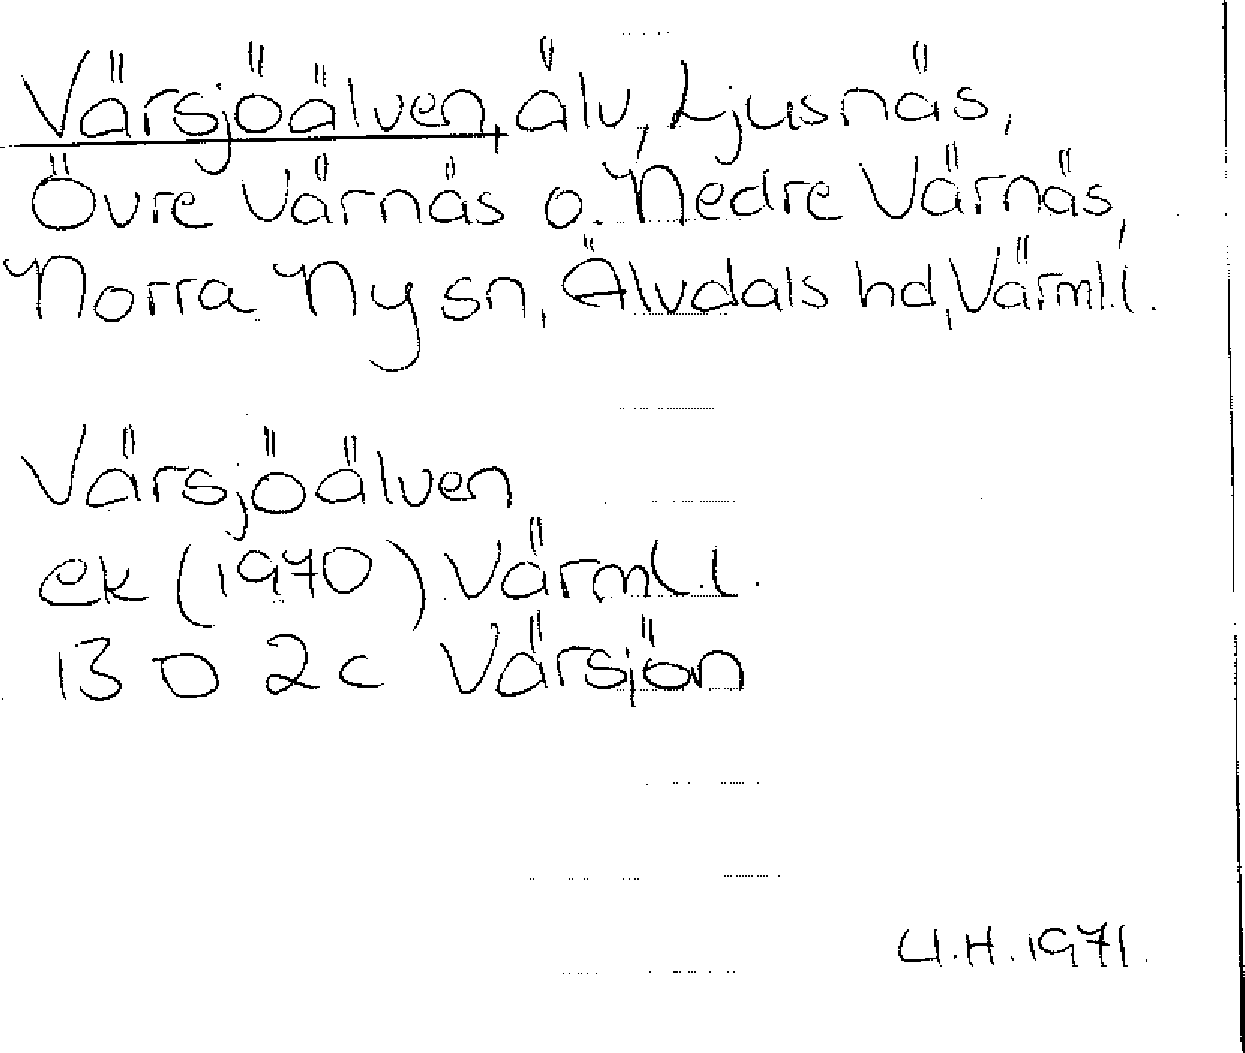 Värsjöälven, älv, Ljusnäs,
Övre Värnäs o. Nedre Värnäs,
Norra Ny sn, Älvdals hd, Värml.l.
Värsjöälven
ek (1970) Värml.l.
13 D 2c Värsjön
U.H. 1971.